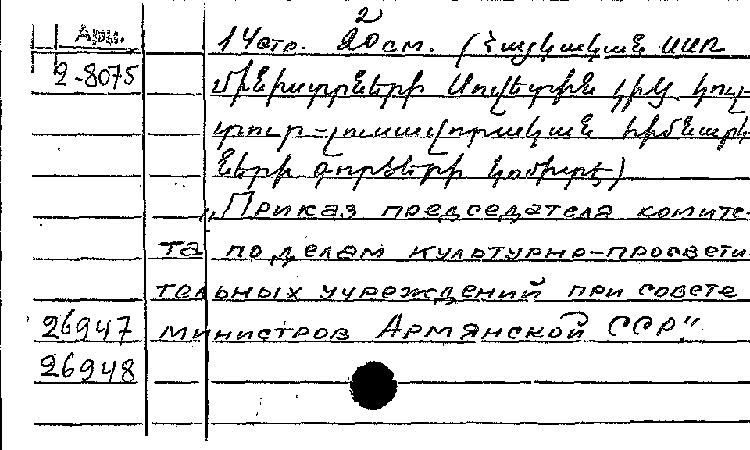 Арм.
2-8075
2
14 стр. 20 см. (Հայկական ՍՍՌ
մինիստրների Սովետին կից կուլ-
տուր-լուսավորական հիմնարկ
ների գործերի կոմիտե)
„Приказ председателя комите-
та по делам культурно-просвети-
тельных учреждений при совете
26947 министров Армянской ССР."
26948